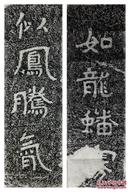 如龍蟠
似鳳騰氣